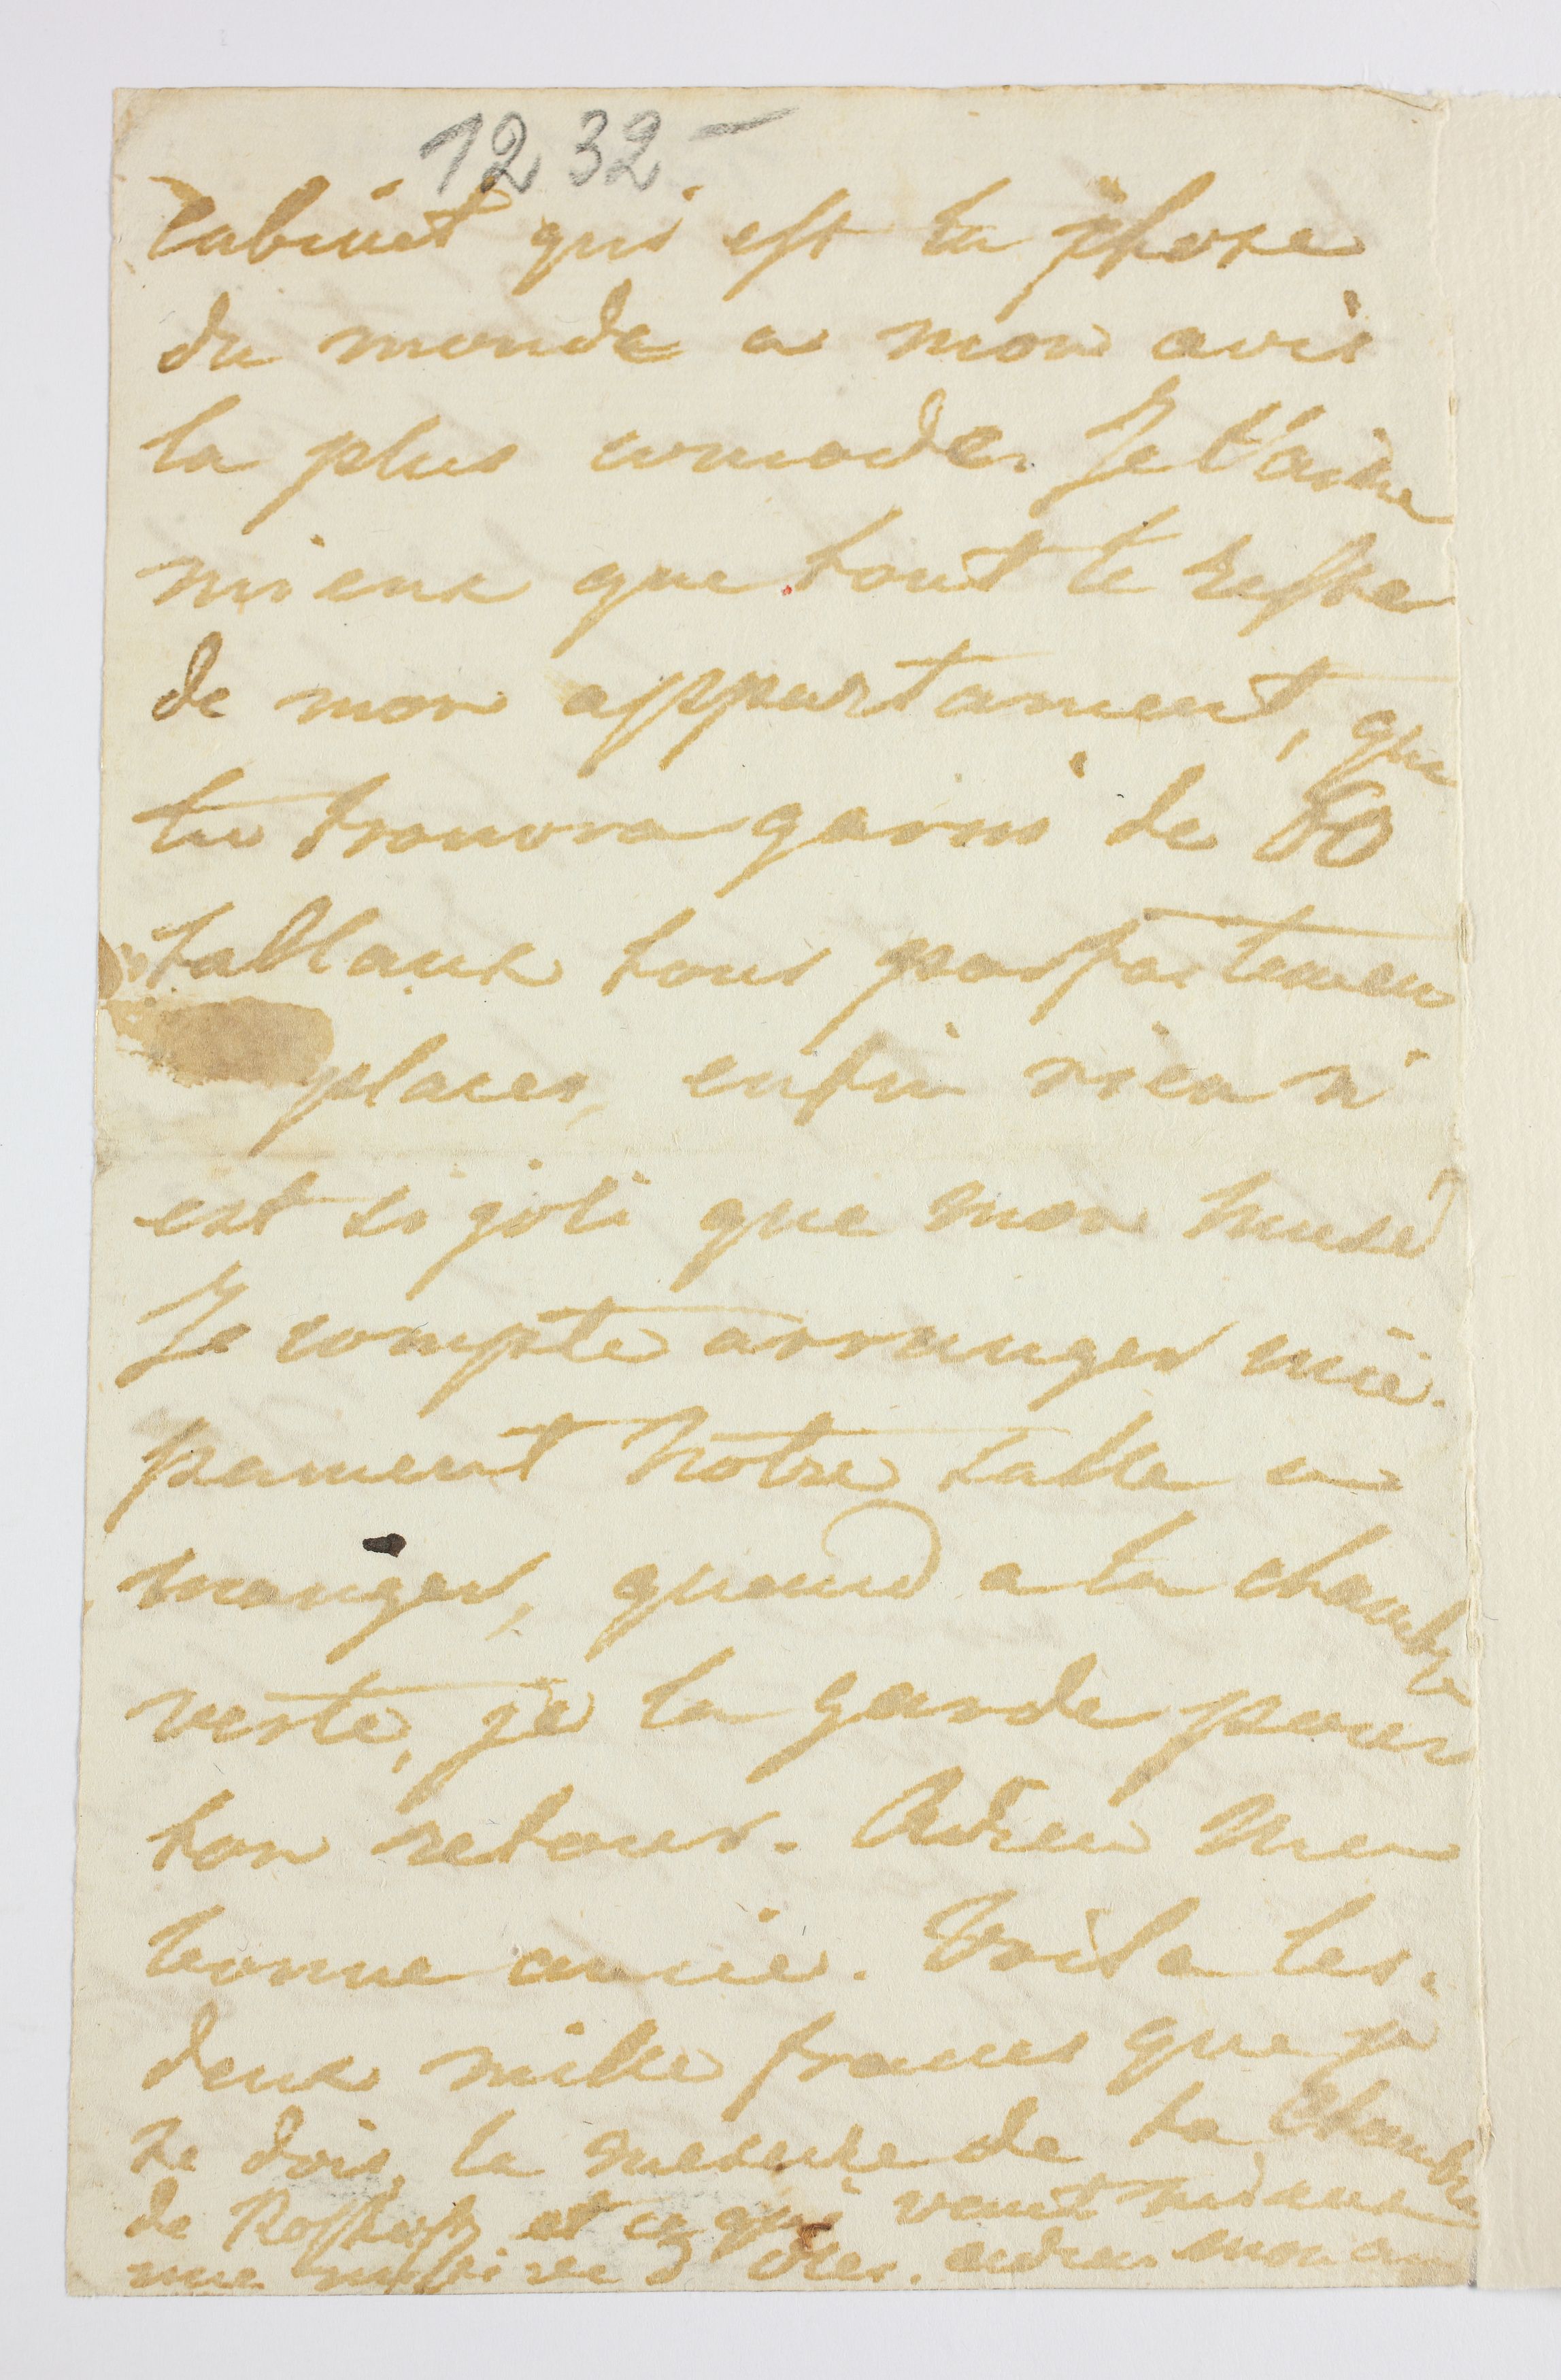 1232-
Cabinet qui est la chose
du monde a mon avis
la plus comode. Je l'aime
mieux que tout le reste
de mon appartament, que
tu trouvra garni de 60
tablaux tous parfaitemen
places, enfin rien n'
est si joli que mon musé
Je compte arranger
notre salle a
manger, quand a la chambre
verte, je la garde pour
ton retour. Adieu Ma
bonne amie. Voila les
deux mille francs que je
te dois, la mesure de la Chambre
de et ce qui vaut mieux
une adieu mon